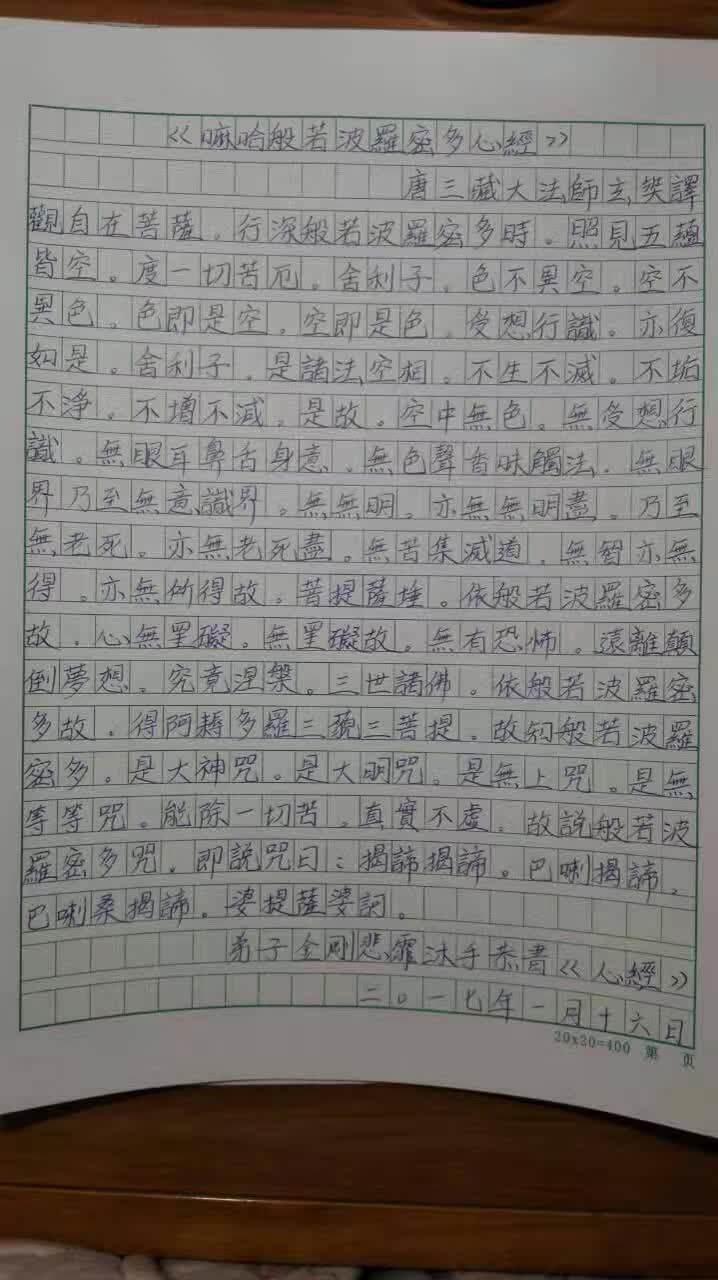 《嘛哈般若波羅密多心經》
唐三藏大法師玄奘譯
觀自在菩薩。行深般若波羅密多時。照見五蘊
皆空。度一切苦厄。舍利子。色不異空。空不
異色。色即是空。空即是色。受想行識。亦復
如是。舍利子。是諸法空相。不生不滅。不垢
不淨。不增不減。是故。空中無色。無受想行
識。無眼耳鼻舌身意。無色聲香味觸法。無眼
界乃至無意識界。無無明。亦無無明盡。乃至
無老死。亦無老死盡。無苦集滅道。無智亦無
得。亦無所得故。菩提薩埵。依般若波羅密多
故。心無罣礙。無罣礙故。無有恐怖。遠離顛
倒夢想。究竟涅槃。三世諸佛。依般若波羅密
多故。得阿耨多羅三藐三菩提。故知般若波羅
密多。是大神咒。是大明咒。是無上咒。是無
等等咒。能除一切苦。真實不虛。故說般若波
羅密多咒。即說咒曰：揭諦揭諦。巴喇揭諦。
巴喇桑揭諦。婆提薩婆訶。
弟子金剛悲霏沐手恭書《心經》
二〇一七年一月十六日
20x20=400 第 页